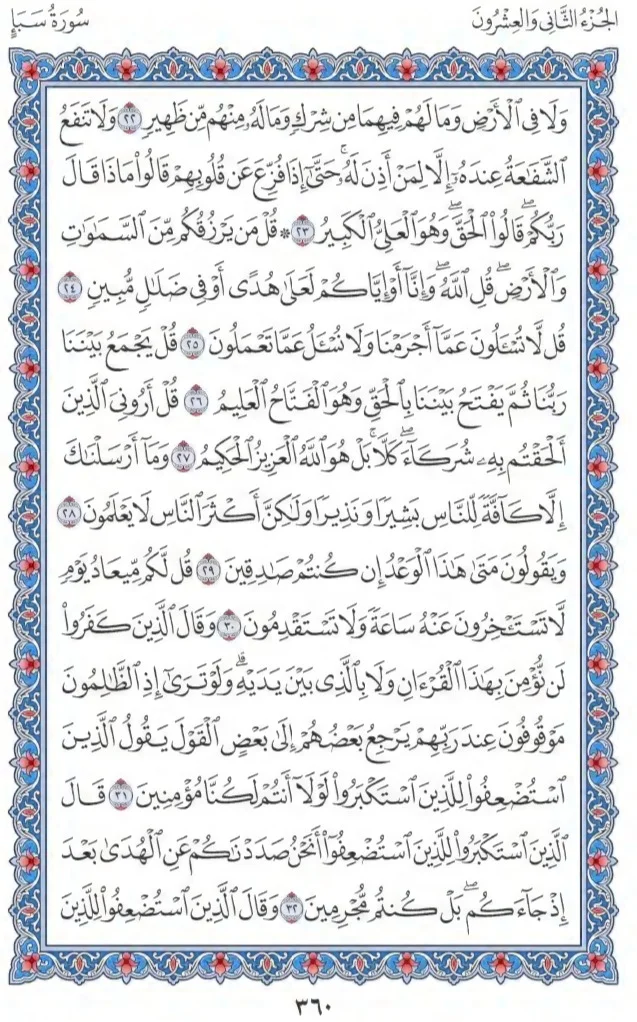 الجُزْءُ الثَّانِي وَالعِشْرُونَ
سُورَةُ سَبَإٍ
وَلَا فِي ٱلْأَرْضِ وَمَا لَهُمْ فِيهِمَا مِن شِرْكٍ وَمَا لَهُۥ مِنْهُم مِّن ظَهِيرٍ ٢٢ وَلَا تَنفَعُ
ٱلشَّفَٰعَةُ عِندَهُۥٓ إِلَّا لِمَنْ أَذِنَ لَهُۥۚ حَتَّىٰٓ إِذَا فُزِّعَ عَن قُلُوبِهِمْ قَالُوا۟ مَاذَا قَالَ
رَبُّكُمْۖ قَالُوا۟ ٱلْحَقَّۖ وَهُوَ ٱلْعَلِيُّ ٱلْكَبِيرُ ٢٣ ۞ قُلْ مَن يَرْزُقُكُم مِّنَ ٱلسَّمَٰوَٰتِ
وَٱلْأَرْضِۖ قُلِ ٱللَّهُۖ وَإِنَّآ أَوْ إِيَّاكُمْ لَعَلَىٰ هُدًى أَوْ فِي ضَلَٰلٍ مُّبِينٍ ٢٤
قُل لَّا تُسْـَٔلُونَ عَمَّآ أَجْرَمْنَا وَلَا نُسْـَٔلُ عَمَّا تَعْمَلُونَ ٢٥ قُلْ يَجْمَعُ بَيْنَنَا
رَبُّنَا ثُمَّ يَفْتَحُ بَيْنَنَا بِٱلْحَقِّ وَهُوَ ٱلْفَتَّاحُ ٱلْعَلِيمُ ٢٦ قُلْ أَرُونِيَ ٱلَّذِينَ
أَلْحَقْتُم بِهِۦ شُرَكَآءَۖ كَلَّاۚ بَلْ هُوَ ٱللَّهُ ٱلْعَزِيزُ ٱلْحَكِيمُ ٢٧ وَمَآ أَرْسَلْنَٰكَ
إِلَّا كَآفَّةً لِّلنَّاسِ بَشِيرًا وَنَذِيرًا وَلَٰكِنَّ أَكْثَرَ ٱلنَّاسِ لَا يَعْلَمُونَ ٢٨
وَيَقُولُونَ مَتَىٰ هَٰذَا ٱلْوَعْدُ إِن كُنتُمْ صَٰدِقِينَ ٢٩ قُل لَّكُم مِّيعَادُ يَوْمٍ
لَّا تَسْتَـْٔخِرُونَ عَنْهُ سَاعَةً وَلَا تَسْتَقْدِمُونَ ٣٠ وَقَالَ ٱلَّذِينَ كَفَرُوا۟
لَن نُّؤْمِنَ بِهَٰذَا ٱلْقُرْءَانِ وَلَا بِٱلَّذِي بَيْنَ يَدَيْهِۗ وَلَوْ تَرَىٰٓ إِذِ ٱلظَّٰلِمُونَ
مَوْقُوفُونَ عِندَ رَبِّهِمْ يَرْجِعُ بَعْضُهُمْ إِلَىٰ بَعْضٍ ٱلْقَوْلَ يَقُولُ ٱلَّذِينَ
ٱسْتُضْعِفُوا۟ لِلَّذِينَ ٱسْتَكْبَرُوا۟ لَوْلَآ أَنتُمْ لَكُنَّا مُؤْمِنِينَ ٣١ قَالَ
ٱلَّذِينَ ٱسْتَكْبَرُوا۟ لِلَّذِينَ ٱسْتُضْعِفُوٓا۟ أَنَحْنُ صَدَدْنَٰكُمْ عَنِ ٱلْهُدَىٰ بَعْدَ
إِذْ جَآءَكُمۖ بَلْ كُنتُم مُّجْرِمِينَ ٣٢ وَقَالَ ٱلَّذِينَ ٱسْتُضْعِفُوا۟ لِلَّذِينَ
٣٦٠